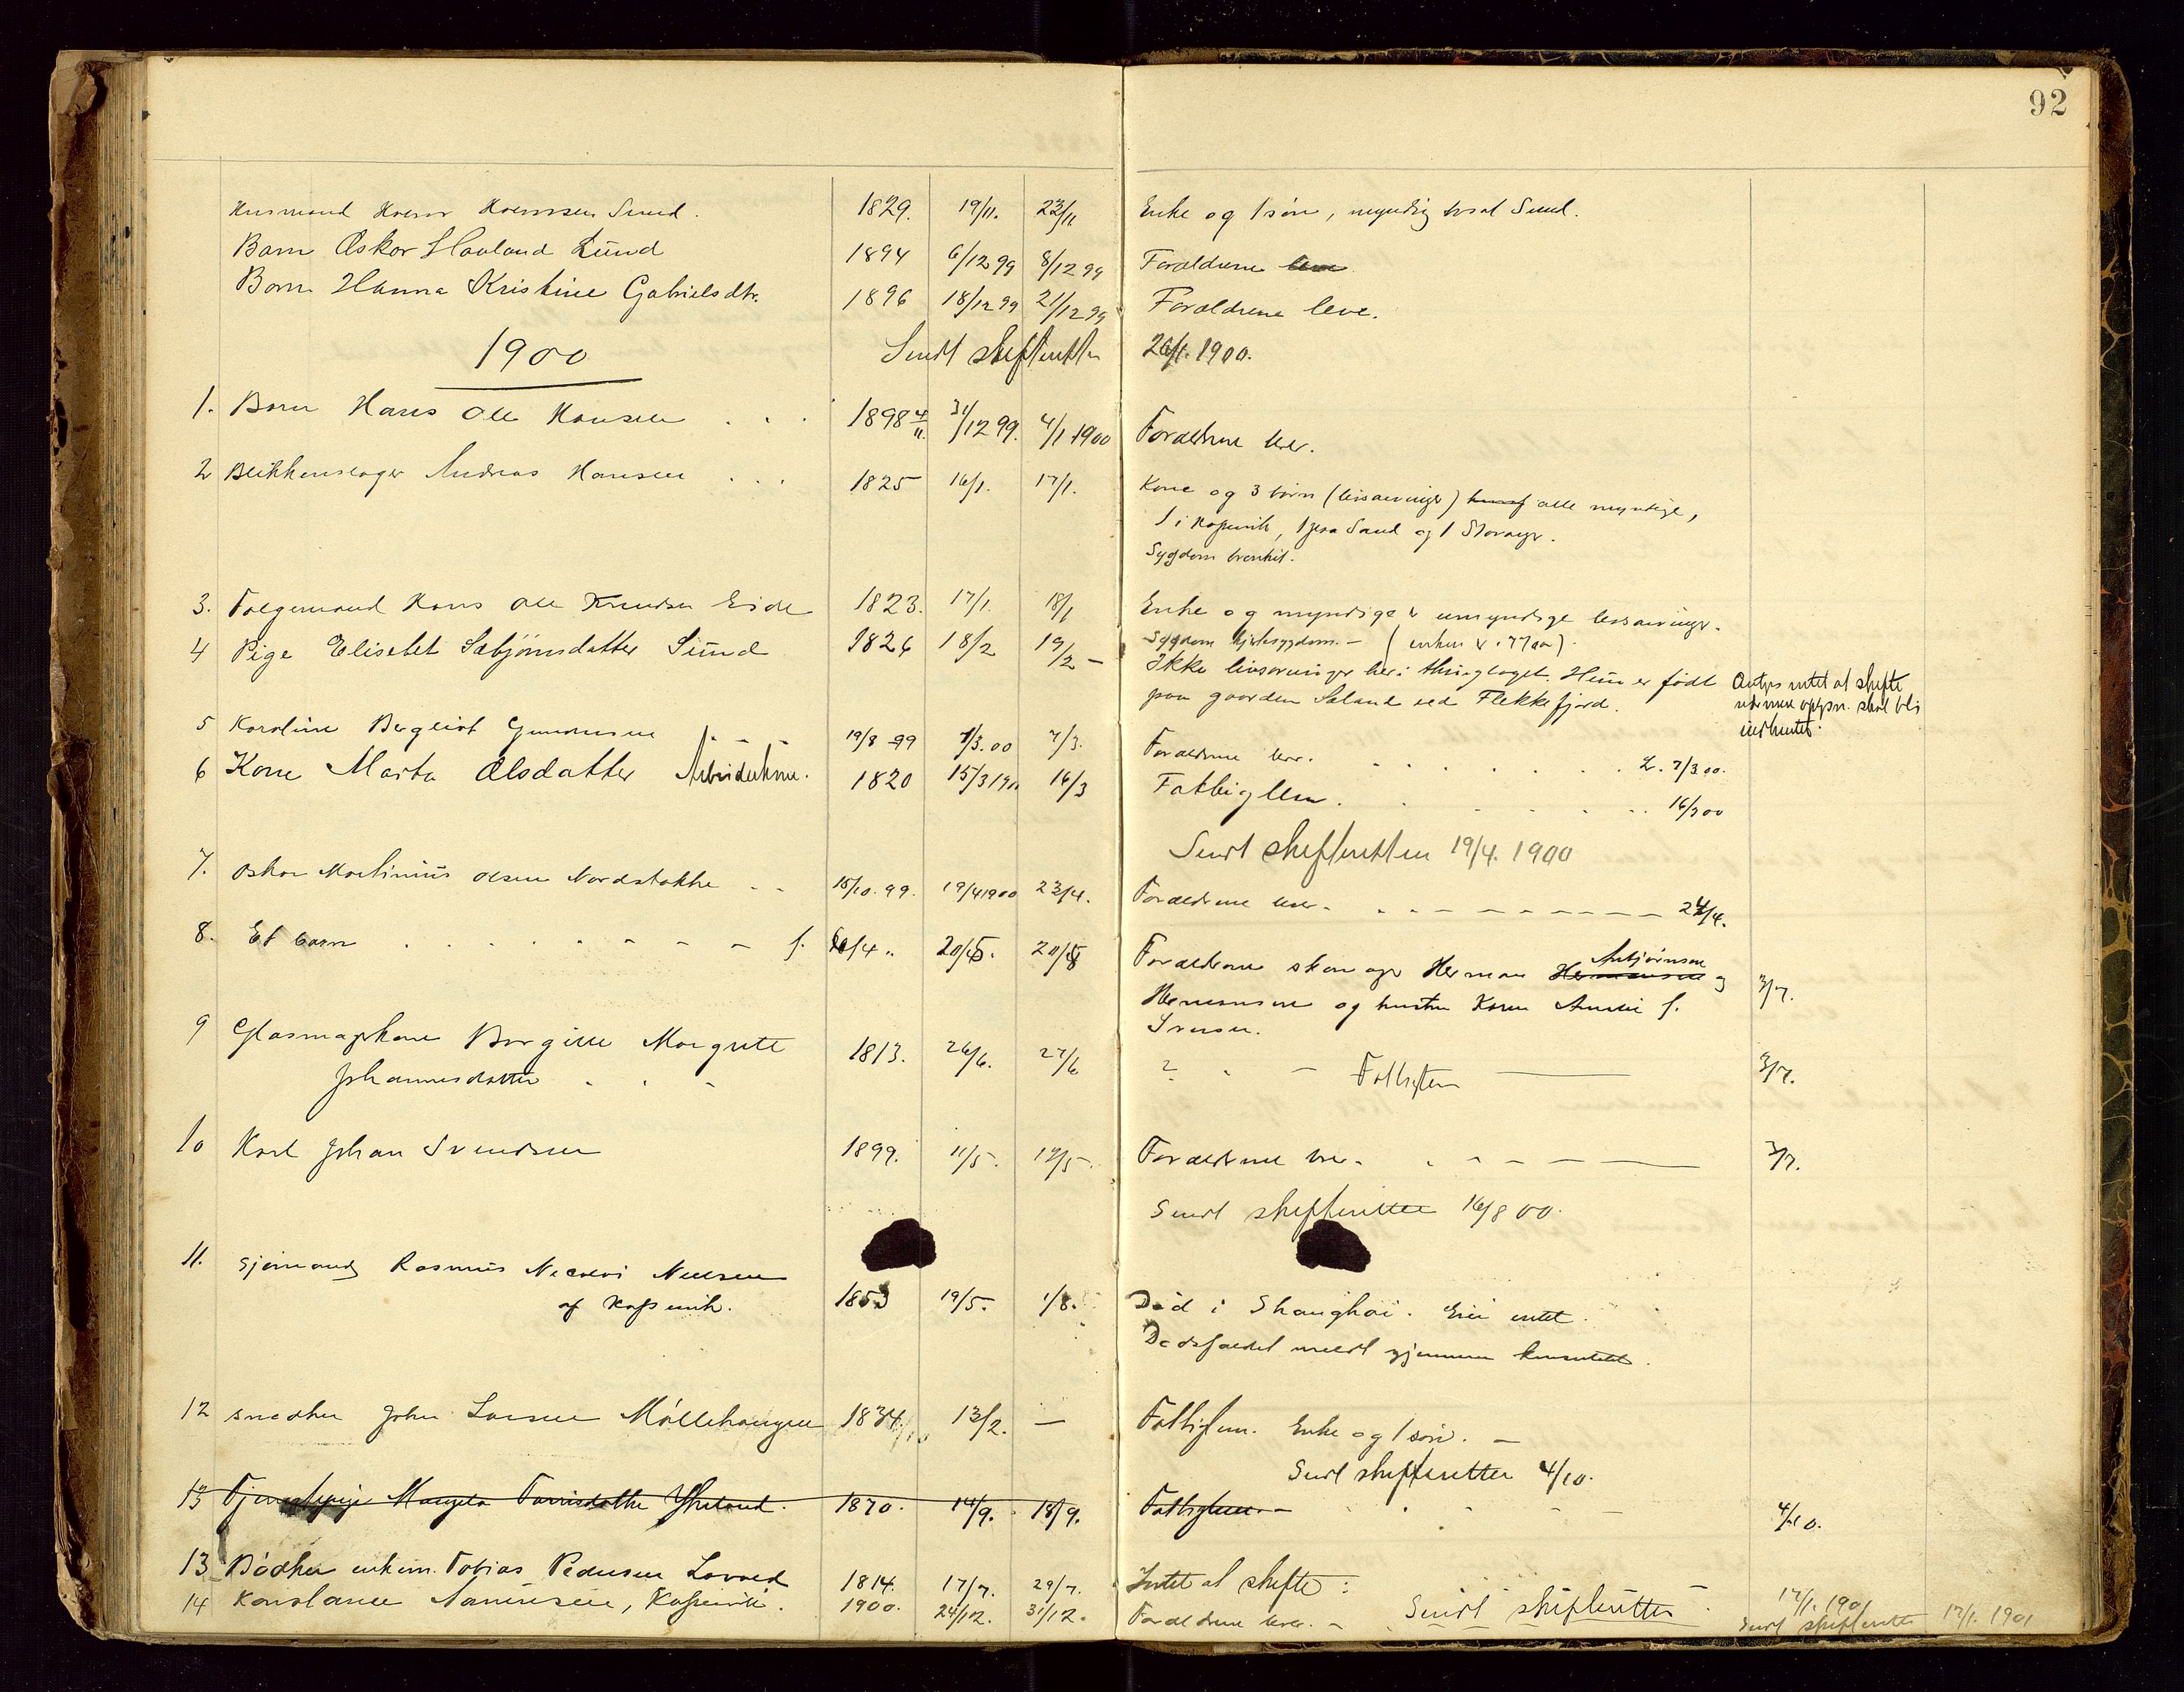 92
Husmand Sund. 1829. 19/11. 23/11 Enke og 1 søn, myndig Sund.
Barn Oskar Havland Lund 1894 6/12 99 8/12 99 Forældrene leve
Barn Hanna Kristine Gabrielsdtr. 1896 18/12 99 21/12 99 Forældrene leve.
1900 Sendt skifteretten 26/1. 1900.
1. Barn Hans Ole Hansen 1898 4/11. 31/12 99. 4/1 1900 Forældrene lever.
2 Blikkenslager Andreas Hansen 1825 16/1. 17/1. Kone og 3 børn (livsarvinger) alle myndige,
1 i Kopervik, 1 paa Sand og 1 Stavanger.
Sygdom bronkit.
3. Følgemand Hans Ole Knudsen Eide 1823. 17/1. 18/1 Enke og myndige & umyndige livsarvinger.
Sygdom hjertesygdom. – (enken er 77 aar).
4 Pige Elisebet Sebjørnsdatter Sund 1826 18/2 19/2 – Ikke livsarvinger her i thinglaget. Hun er født
paa gaarden Saland ved Flekkefjord.
Antges intet at skifte
nærmere oplysn. skal bli
indhentet.
5 Karoline Bergliot Gundersen 19/8 99 7/3. 00 7/3. Forældrene lever. L. 7/3 00.
6 Kone Marta Olsdatter Arbeiderkone. 1820 15/3 1900 16/3 Fattiglem. 16/3 00
Sendt skifteretten 19/4. 1900
7. Oskar Martinius Olsen Nordstokke 15/10. 99. 19/4 1900 23/4. Forældrene lever. 24/4.
8. Et barn f. 20/4 20/5. 20/5 Forældrene skomager Herman Hermansen Asbjørnsen og
Hermansen og hustru Karen Amalie f.
Iversen. 3/7.
9 Glasmagerkone Borgille Margrete 1813. 26/6. 27/6 ? Fattiglem 3/7.
Johannesdatter
10 Karl Johan Svendsen 1899. 11/5. 12/5. Forældrene lever. 3/7.
Sendt skifteretten 16/8 00.
11. Sjømand Rasmus Nicolai Nielsen
af Kopervik. 1853 19/5. 1/8. Død i Shanghai. Eier intet.
Dødsfaldet meldt gjennem konsulatet.
12 Snedker John Larsen Møllehaugen 1834 13/2. — Fattiglem. Enke og 1 søn. –
Sendt skifteretten 4/10.
13 Tjenestepige 1870. 14/9. 18/9. Fattiglem. – 4/10.
13 Bødker enkem. Tobias Pedersen 1814. 17/7. 29/7. Intet at skifte:
14 Konstance Kopervik. 1900. 24/12. 31/12. Forældrene lever. – Sendt skifteretten 17/1. 1901
Sendt skifteretten 17/1. 1901